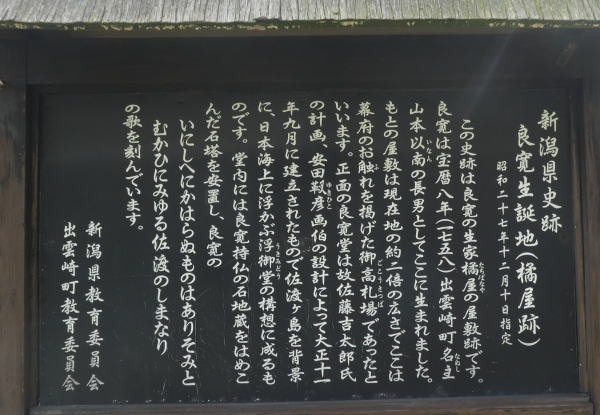 新潟県史跡
良寛生誕地(橘屋跡)
昭和二十七年十二月十日指定
この史跡は良寛の生家橘屋の屋敷跡です。
たちばなや
良寛は宝暦八年(一七五八)出雲崎町名主
なぬし
山本以南の長男としてここに生まれました。
いなん
もとの屋敷は現在地の約二倍の広さでここは
幕府のお触れを掲げた御高札場であったと
ふ
ごこうさつば
いいます。正面の良寛堂は故佐藤吉太郎氏
の計画、安田靫彦画伯の設計によって大正十一
ゆきひこ
年九月に建立されたもので佐渡ヶ島を背景
に、日本海上に浮かぶ浮御堂の構想に成るも
うきみどう
のです。堂内には良寛持仏の石地蔵をはめこ
んだ石塔を安置し、良寛の
いにしへにかはらぬものはありそみと
むかひにみゆる佐渡のしまなり
の歌を刻んでいます。
新潟県教育委員会
出雲崎町教育委員会